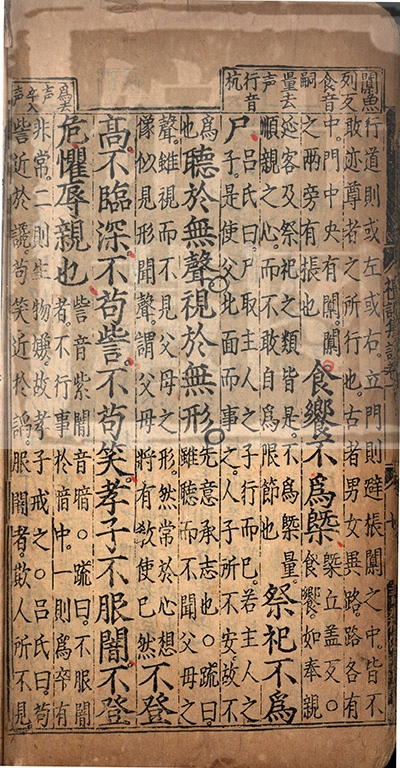 闑魚
列反
食音
嗣
量去
声
行音
杭
行道則或左或右。立門則避棖闑之中。皆不
敢迹尊者之所行也。古者男女異路。路各有
中。門中央有闑。闑
之兩旁有棖也
食饗不為槩
槩立盖反。○
食饗。如奉親
延客及祭祀之類皆是。不為槩量。
順親之心。而不敢自為限節也
祭祀不為
尸
呂氏曰尸取主人之子行而已。若主人之
子。是使父北面而事之。人子所不安。故不
為
聽於無聲視於無形
先意承志也。○䟽曰。
雖聽而不聞父母之
聲。雖視而不見父母之形。然常於心想
像似見形聞聲。謂父母將有教使己然
不登
高不臨深不苟訾不苟笑孝子不服闇不登
危懼辱親也
訾音紫闇音暗。○䟽曰。不服闇
者。不行事於暗中。一則為卒有
非常。二則生物嫌。故孝子戒之。○呂氏曰。苟
訾近於讒。苟笑近於謟。服闇者。欺人所不見